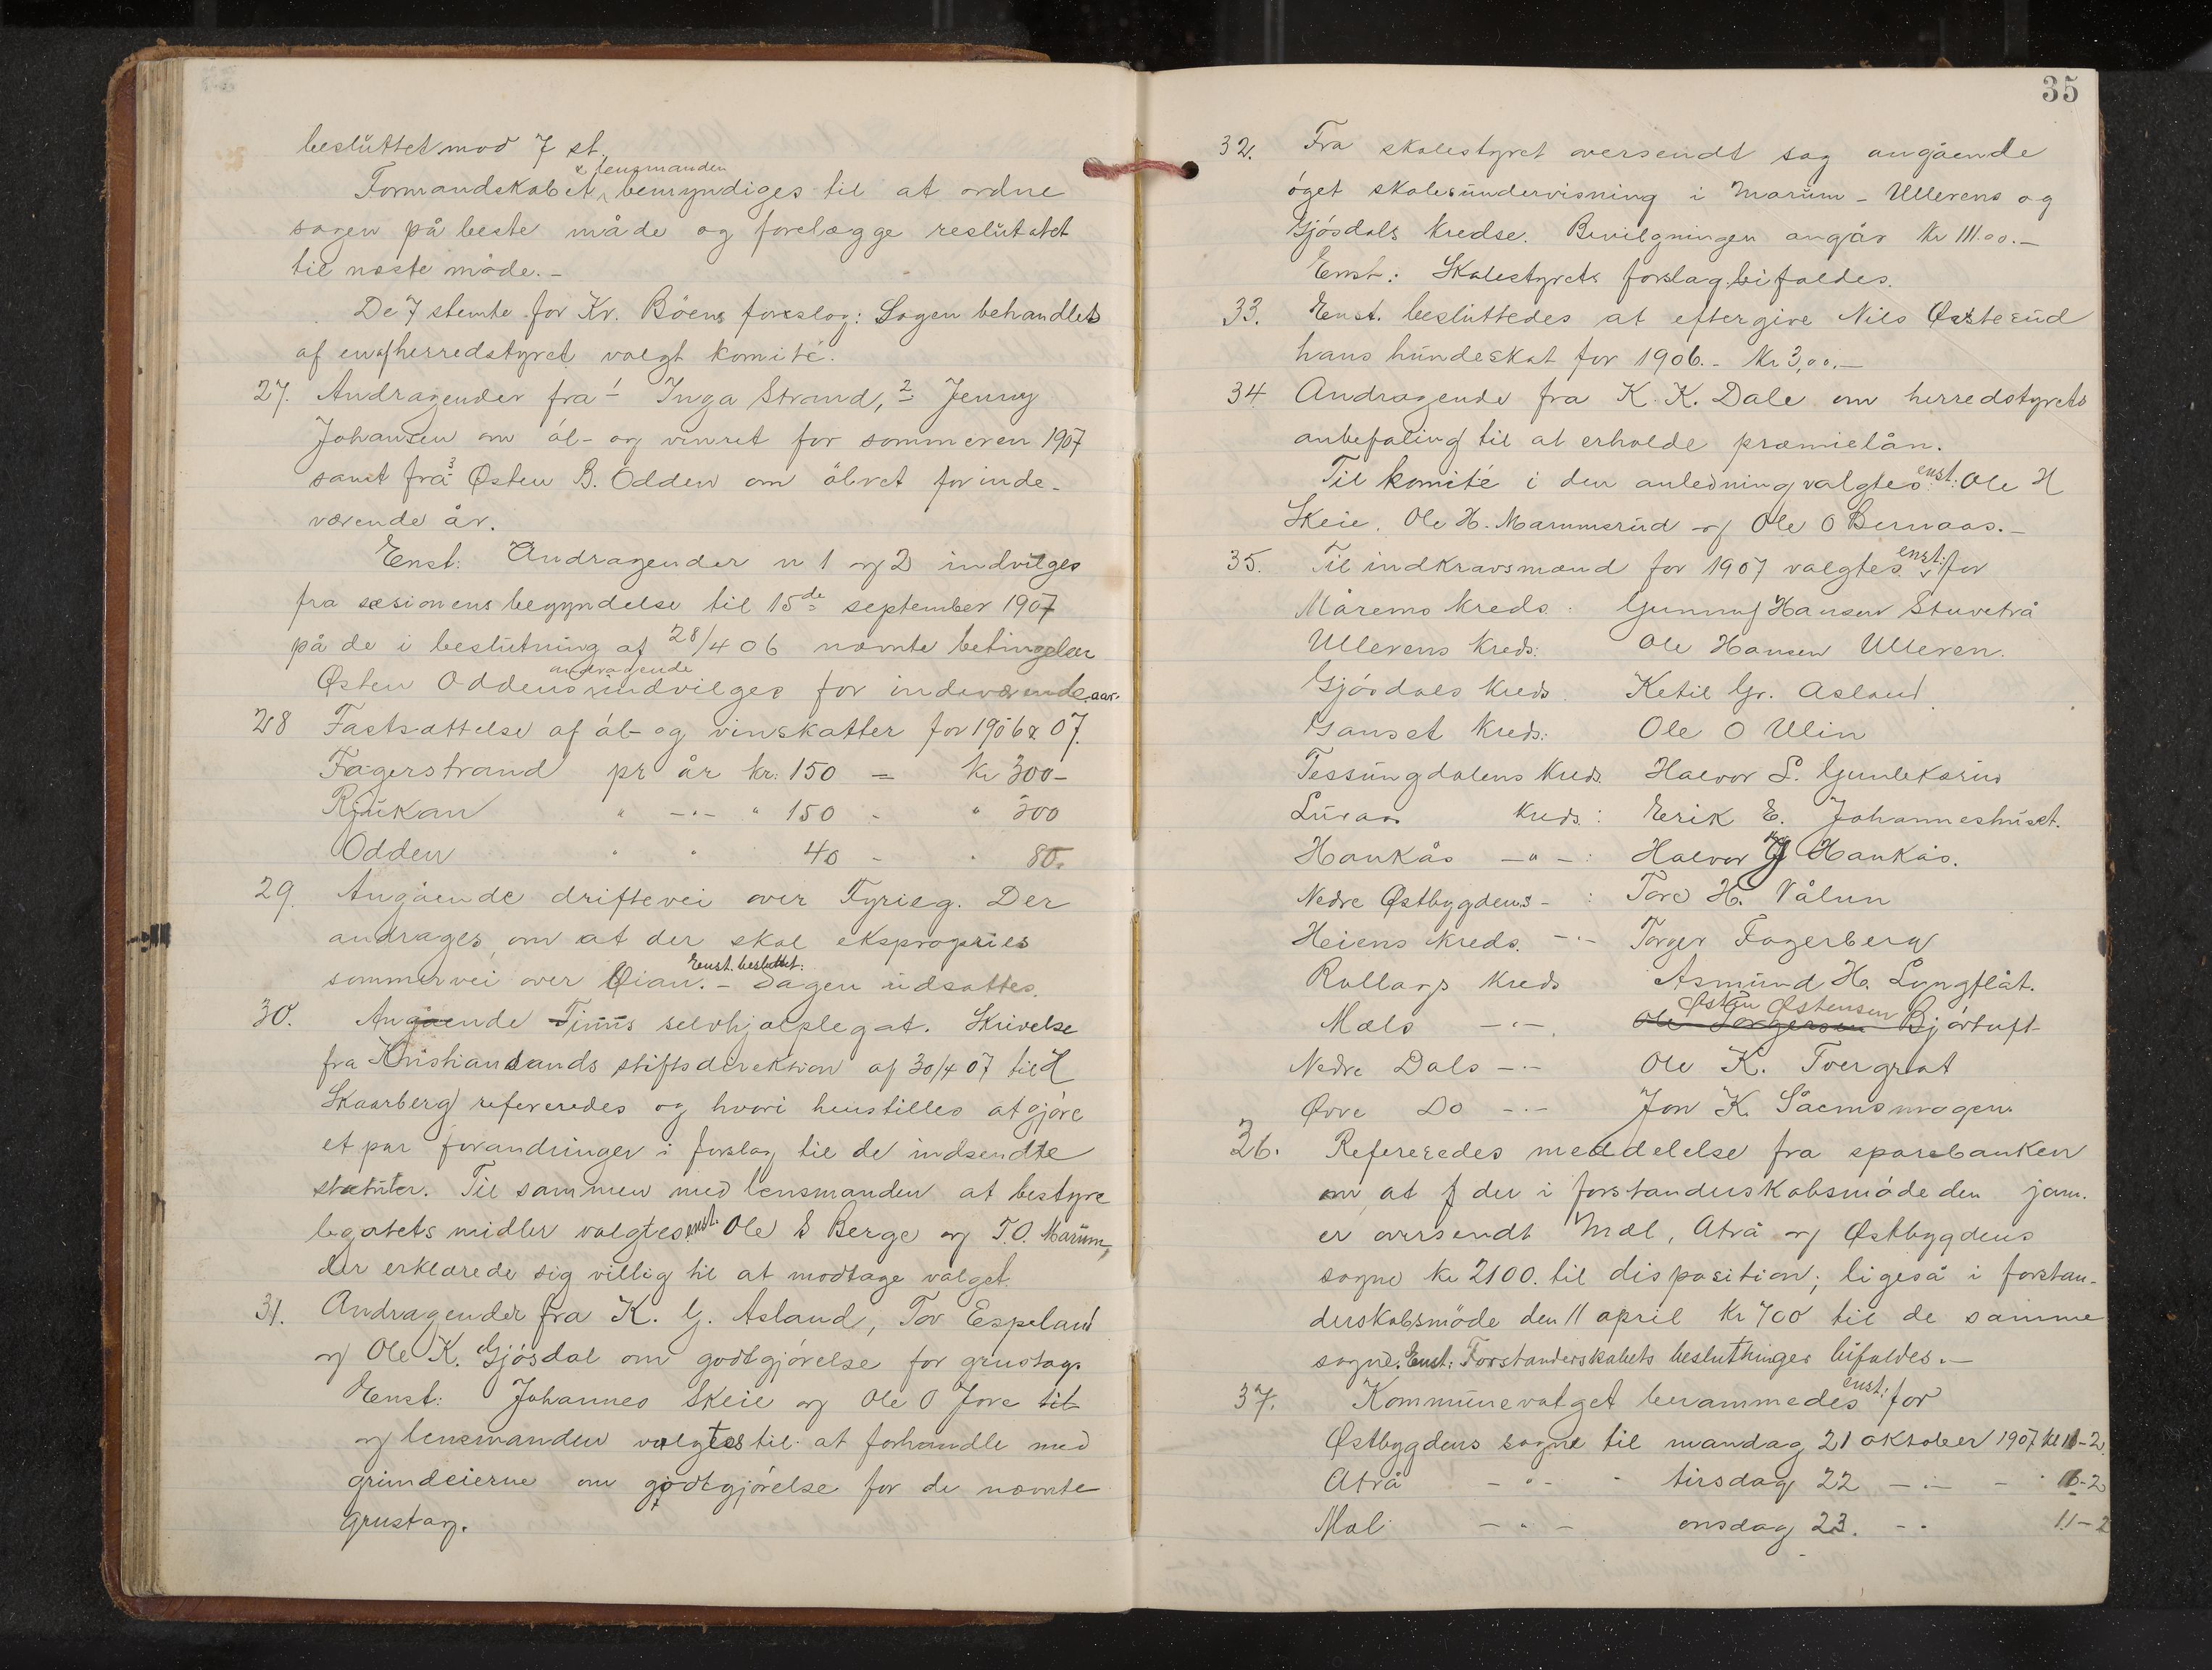 besluttet mod 7 st.
& lensmanden
Formandskabet bemyndiges til at ordne
sagen på beste måde og forelægge reslutatet
til næste möde. –
De 7 stemte for Kr. Böens forslag: Sagen behandles
af en af herredstyret valgt komité.
27. Andragender fra 1 Inga Strand, 2 Jenny
Johansen om öl- og vinret for sommeren 1907
samt fra 3 Østen B. Odden om ölret for inde-
værende år.
Enst: Andragender n 1 og 2 indvilges
fra sæsionens begyndelse til 15de september 1907
på de i beslutning af 28/4 06 nævnte betingelser
andragende
Østen Oddens indvilges for indeværende aar.
28 Fastsættelse af öl- og vinskatter for 1906 & 07.
Fagerstrand pr år kr: 150 = Kr 300 –
Rjukan " –"– " 150 - " 300
Odden " " 40 - " 80.
29. Angående driftevei over Tyrieg. Der
andrages om at der skal eksproprieres
Enst. besluttet:
sommervei over Øian. – Sagen udsattes.
30. Angående Tinns selvhjælplegat. Skrivelse
fra Kristiansands stiftsdirektion af 30/4 07 til H
Skaarberg refereredes og hvori henstilles at gjöre
et par forandringer i forslag til de indsendte
statuter. Til sammen med lensmanden at bestyre
legatets midler valgtes enst. Ole S Berge og T.O. Marum,
der erklærede sig villig til at modtage valget.
31. Andragender fra K. G. Asland, Tov Espeland
og Ole K. Gjösdal om godtgjörelse for grustag.
Enst: Johannes Skeie og Ole O Jore til
og lensmanden valgtes til at forhandle med
grundeierne om godtgjörelse for de nævnte
grustag.
35
32. Fra skolestyret oversendt sag angående
öget skolesundervisning i Marum – Ullerens og
Gjösdals kredse. Bevilgningen angår Kr 111.00. –
Enst: Skolestyrets forslag bifaldes.
33. Enst. besluttedes at eftergive Nils Østerud
hans hundeskat for 1906. – Kr 3,00. –
34 Andragende fra K. K. Dale om herredstyrets
anbefaling til at erholde præmielån.
Til komité i den anledning valgtes enst: Ole H
Skeie, Ole H. Mammsrud og Ole O Bernaas. –
35. Til indkravsmænd for 1907 valgtes enst: for
Mårems kreds: Gunnuf Hansen Stuvetrå
Ullerens kreds: Ole Hansen Ulleren.
Gjösdals kreds Ketil Gr. Asland.
Gauset kreds: Ole O Ulin
Tessungdalens kreds. Halvor S. Gunleksrud
Luraas kreds: Erik E. Johanneshuset.
Haukås –"–: Halvor Haukås.
Nedre Østbygdens –: Tore H. Vålun
Heiens kreds. –"– Torger Fagerberg
Rollags kreds Asmund H. Lyngflåt.
Østen Østensen
Mæls –"–. Ole Torgersen Björtuft
Nedre Dals –"– Ole K. Tvergrot
Øvre Do –"– Jon K.
36. Refereredes meddelelse fra sparebanken
om at der i forstanderskabsmöde den jan.
er oversendt Mæl, Atrå og Østbygdens
sogne kr 2100. til disposition; ligeså i forstan-
derskabsmöde den 11 april Kr 700 til de samme
sogne. Enst: Forstanderskabets beslutninger bifaldes. –
37. Kommunevalget berammedes enst: for
Østbygdens sogne til mandag 21 oktober 1907 kl 11-2.
Atrå –"– - tirsdag 22 –"– – " 11-2
Mæl –"– onsdag 23. –" 11-2